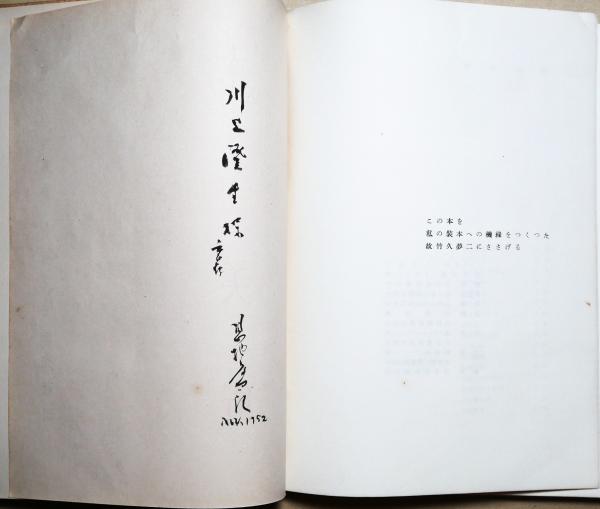 川上澄生様
恩地孝四郎
NOV.1952
この本を
私の装本への機縁をつくつた
故竹久夢二にささげる